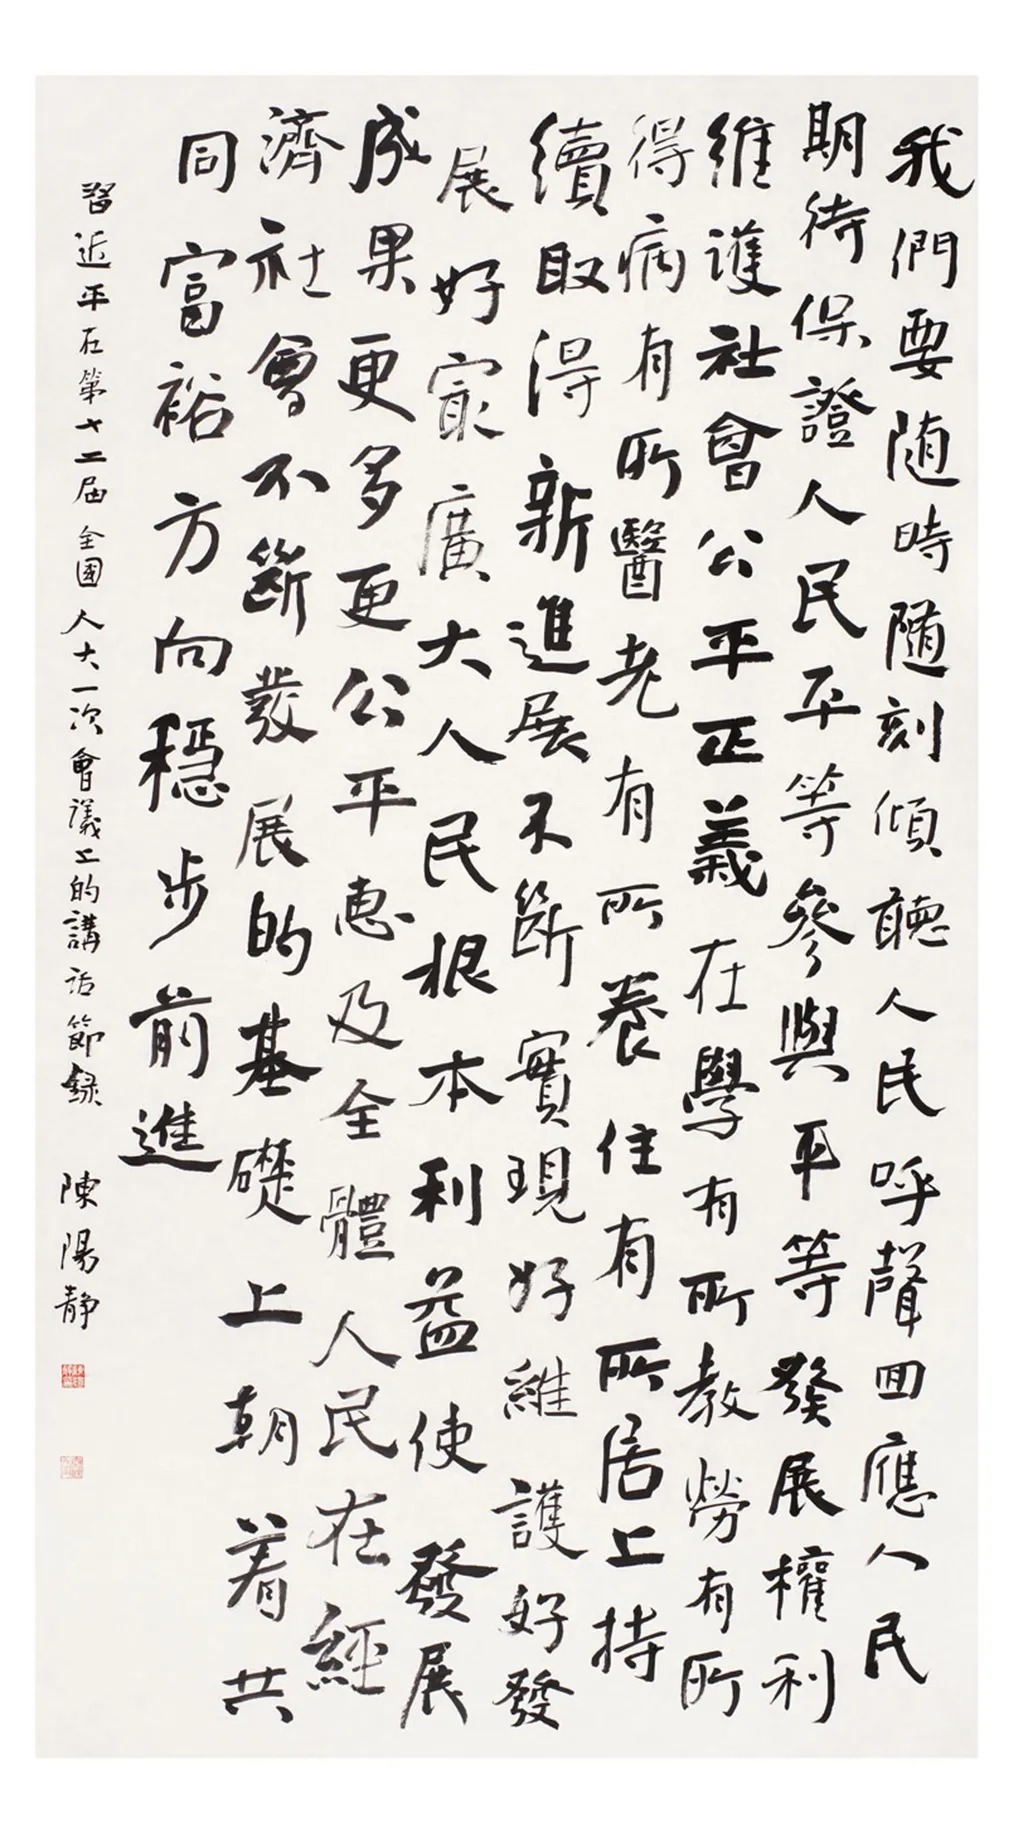 我們要随時随刻傾聽人民呼聲回應人民
期待保證人民平等參與平等發展權利
維護社會公平正義在學有所教勞有所
得病有所醫老有所養住有所居上持
續取得新進展不斷實現好維護好發
展好最廣大人民根本利益使發展
成果更多更公平惠及全體人民在經
濟社會不斷發展的基礎上朝着共
同富裕方向穩步前進
習近平在第十二届全國人大一次會議上的講話節録
陳陽静